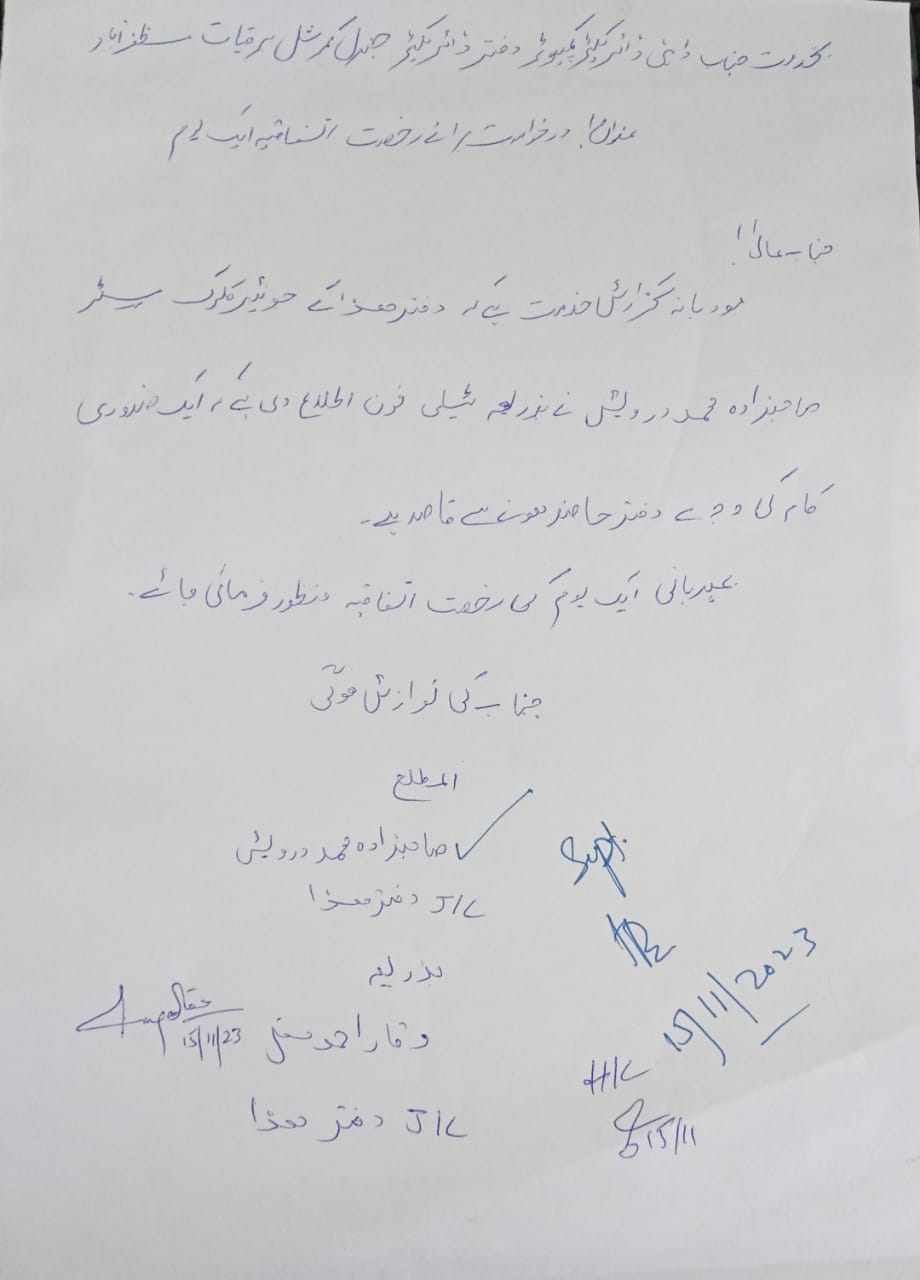 بخدمت جناب ڈپٹی ڈائریکٹر کمپیوٹر دفتر ڈائریکٹر جنرل کمرشل برقیات مظفرآباد
عنوان! درخواست برائے رخصت اتفاقیہ ایک یوم
جناب عالی!
مودبانہ گزارش خدمت ہے کہ دفتر ھذا کے جونیئر کلرک مسٹر
صاحبزادہ محمد درویش نے بذریعہ ٹیلی فون اطلاع دی ہے کہ ایک ضروری
کام کی وجہ سے دفتر حاضر ہونے سے قاصر ہے۔
مہربانی ایک یوم کی رخصت اتفاقیہ منظور فرمائی جائے۔
جناب کی نوازش ہوگی
المطلع
صاحبزادہ محمد درویش
J/C دفتر ھذا
بذریعہ
وقار احمد
15/11/23
J/C دفتر ھذا
Supt.
15/11/2023
H/C
15/11